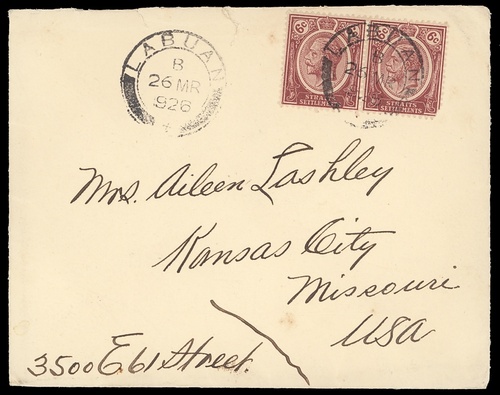 LABUAN
B
26 MR
926
6c 6c
STRAITS SETTLEMENTS
STRAITS SETTLEMENTS
Mrs. Aileen Lashley
Kansas City
Missouri
USA
3500 E. 61 Street.